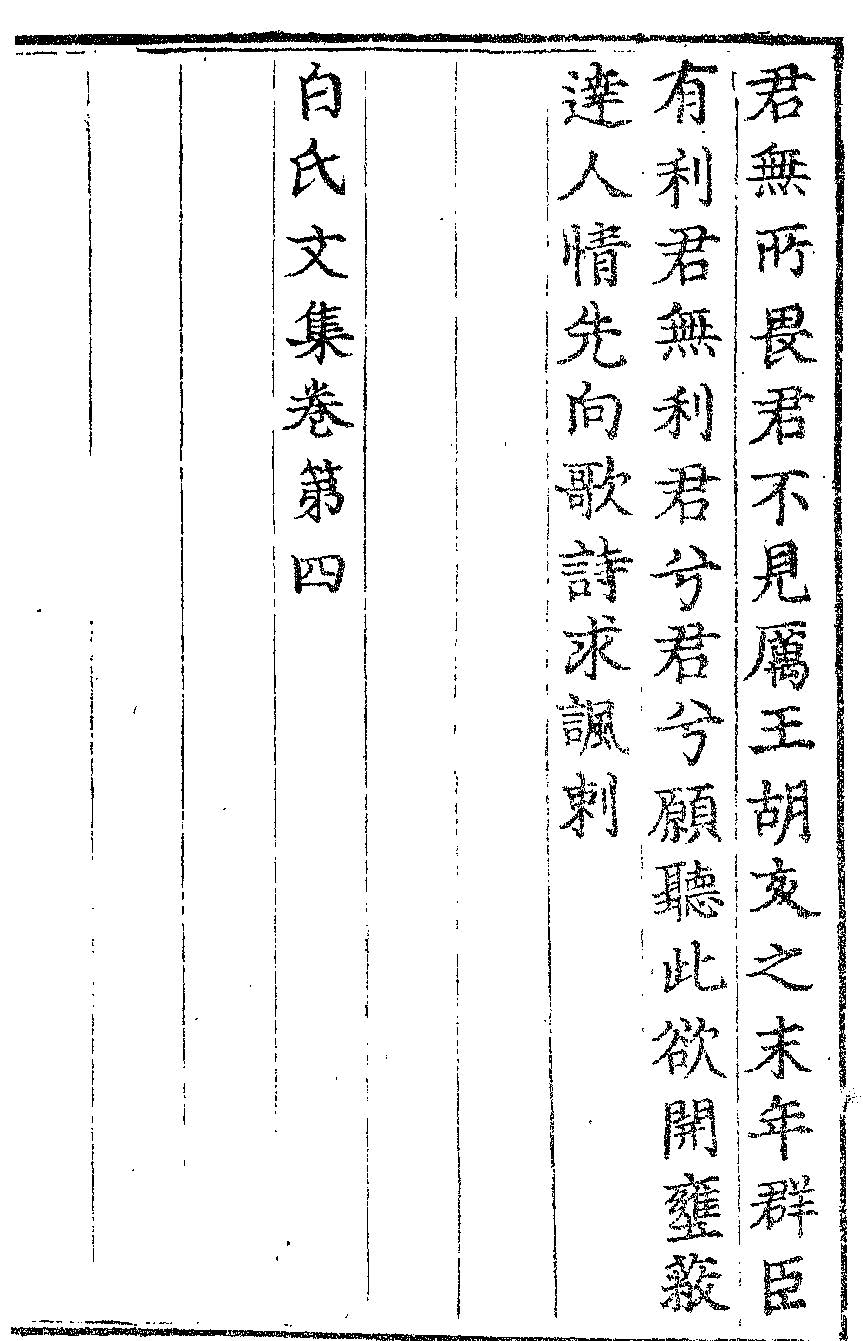 君無所畏君不見厲王胡亥之末年群臣
有利君無利君兮君兮願聽此欲開壅蔽
達人情先向歌詩求諷刺
白氏文集卷第四